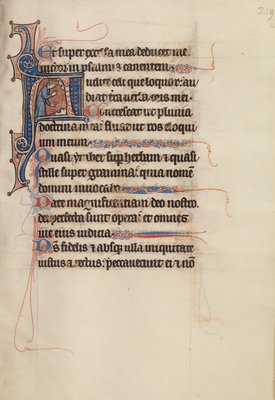 Et super excelsa mea deducet me
victor in psalmis canentem
Audite celi que loquor: au
diat terra verba oris mei.
Concrescat ut pluvia
doctrina mea: fluat ut ros eloqui
um meum
Quasi ymber super herbam et quasi
stille super gramina: quia nomen
domini invocabo
Date magnificentiam deo nostro:
dei perfecta sunt opera: et omnes
vie eius iudicia
Deus fidelis et absque ulla iniquitate
iustus et rectus: peccaverunt ei et non